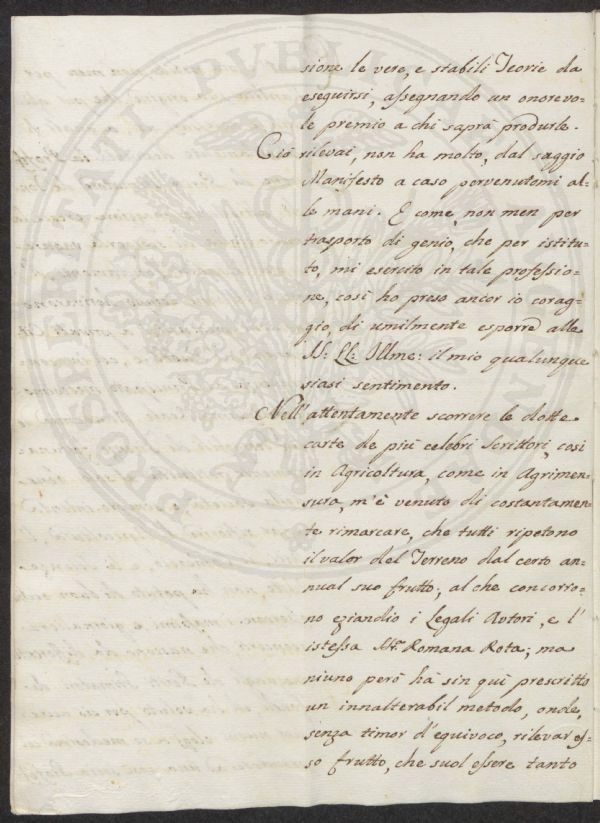 sione le vere, e stabili Teorie da
eseguirsi, assegnando un onorevo=
le premio a chi saprà produrle.
Ciò rilevai, non ha molto, dal saggio
Manifesto a caso pervenutomi al=
le mani. E come, non men per
trasporto di genio, che per istitu=
to, mi esercito in tale professio=
ne, così ho preso ancor io corag=
gio, di umilmente esporre alle
SS: LL: Illme: il mio qualunque
siasi sentimento.
Nell'attentamente scorrere le dotte
carte de più celebri Scrittori, così
in Agricoltura, come in Agrimen=
sura, m'è venuto di costantamen=
te rimarcare, che tutti ripetono
il valor del Terreno dal certo an=
nual suo frutto; al che concorro=
no eziandio i Legali Autori, e l'
istessa Romana Rota; ma
niuno però hà sin quì prescritto
un innalterabil metodo, onde,
senza timor d'equivoco, rilevar es=
so frutto, che suol essere tanto
PROSPERITATI PVBLICAE